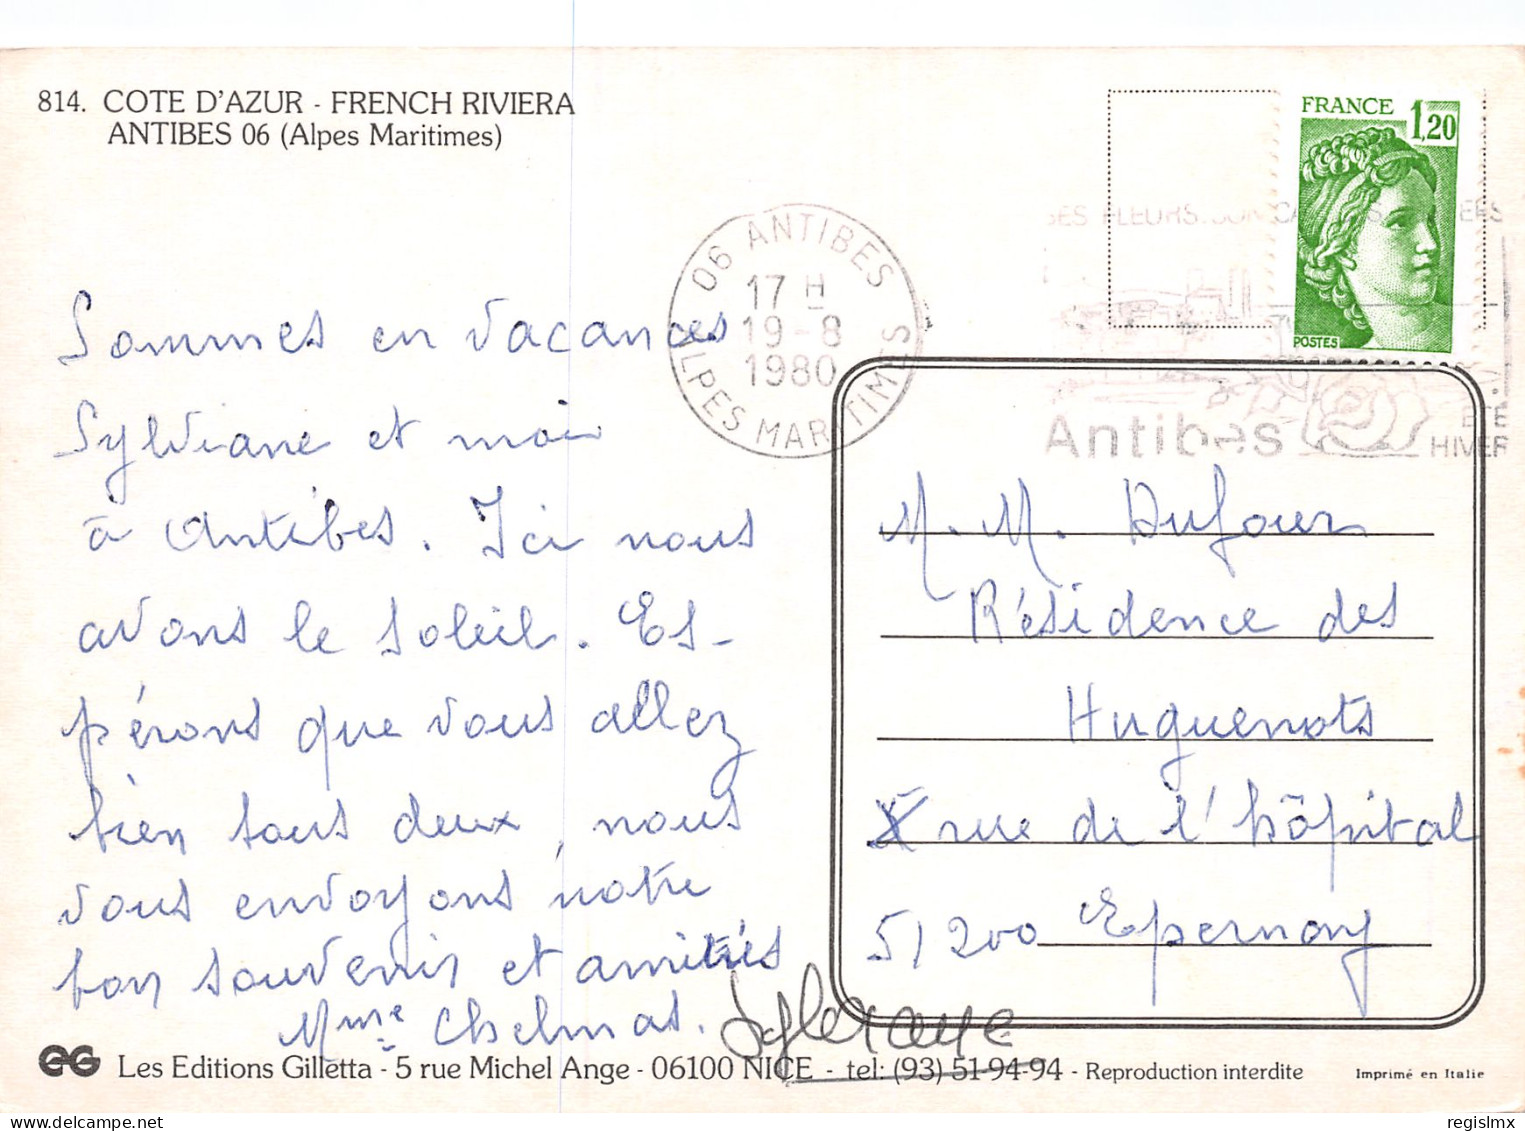 814. COTE D'AZUR - FRENCH RIVIERA
ANTIBES 06 (Alpes Maritimes)
FRANCE 1,20
POSTES
06 ANTIBES
17 H
19-8
1980
ALPES MARITIMES
FLEURS
Antibes
ETE
HIVER
Sommes en vacances
Sylviane et moi
à Antibes. Ici nous
avons le soleil. Es-
pérons que vous allez
bien tous deux, nous
vous envoyons notre
bon souvenir et amitiés
Mme Chelmas.
M. M. Dufour
Résidence des
Huguenots
rue de l'hôpital
51200 Epernay
EG Les Editions Gilletta - 5 rue Michel Ange - 06100 NICE - tel: (93) 51-94-94 - Reproduction interdite
Imprimé en Italie
regislmx